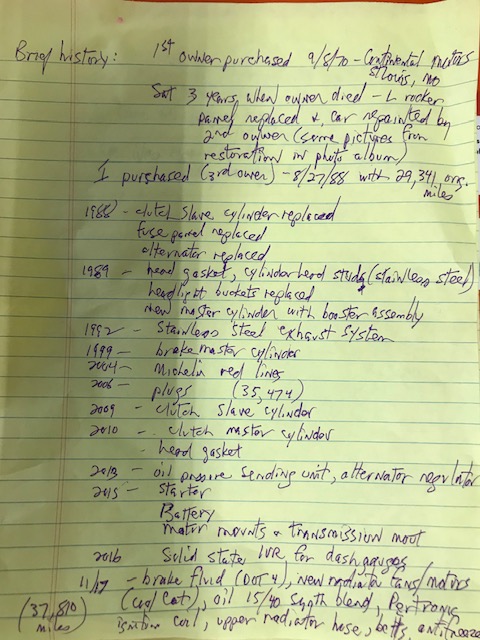 Brief history: 1st owner purchased 9/8/70 - Continental Motors
St Louis, MO
Sat 3 years, when owner died - L rocker
panel replaced & car repainted by
2nd owner (some pictures from
restoration in photo album)
I purchased (3rd owner) - 8/27/88 with 29,341 org.
miles
1988 - clutch slave cylinder replaced
fuse panel replaced
alternator replaced
1989 - head gasket, cylinder head studs (stainless steel)
headlight buckets replaced
new master cylinder with booster assembly
1992 - Stainless steel exhaust system
1999 - brake master cylinder
2004 - Michelin red lines
2006 - plugs (35,474)
2009 - clutch slave cylinder
2010 - clutch master cylinder
- head gasket
2013 - oil pressure sending unit, alternator regulator
2015 - Starter
Battery
motor mounts & transmission moot
2016 Solid state IVR for dash gauges
11/17 - brake fluid (DOT 4), new radiator fans/motors
(37,810 miles) (Cool Cat), oil 15/40 synth blend, Pertronix
ignition coil, upper radiator hose, belts, antifreeze